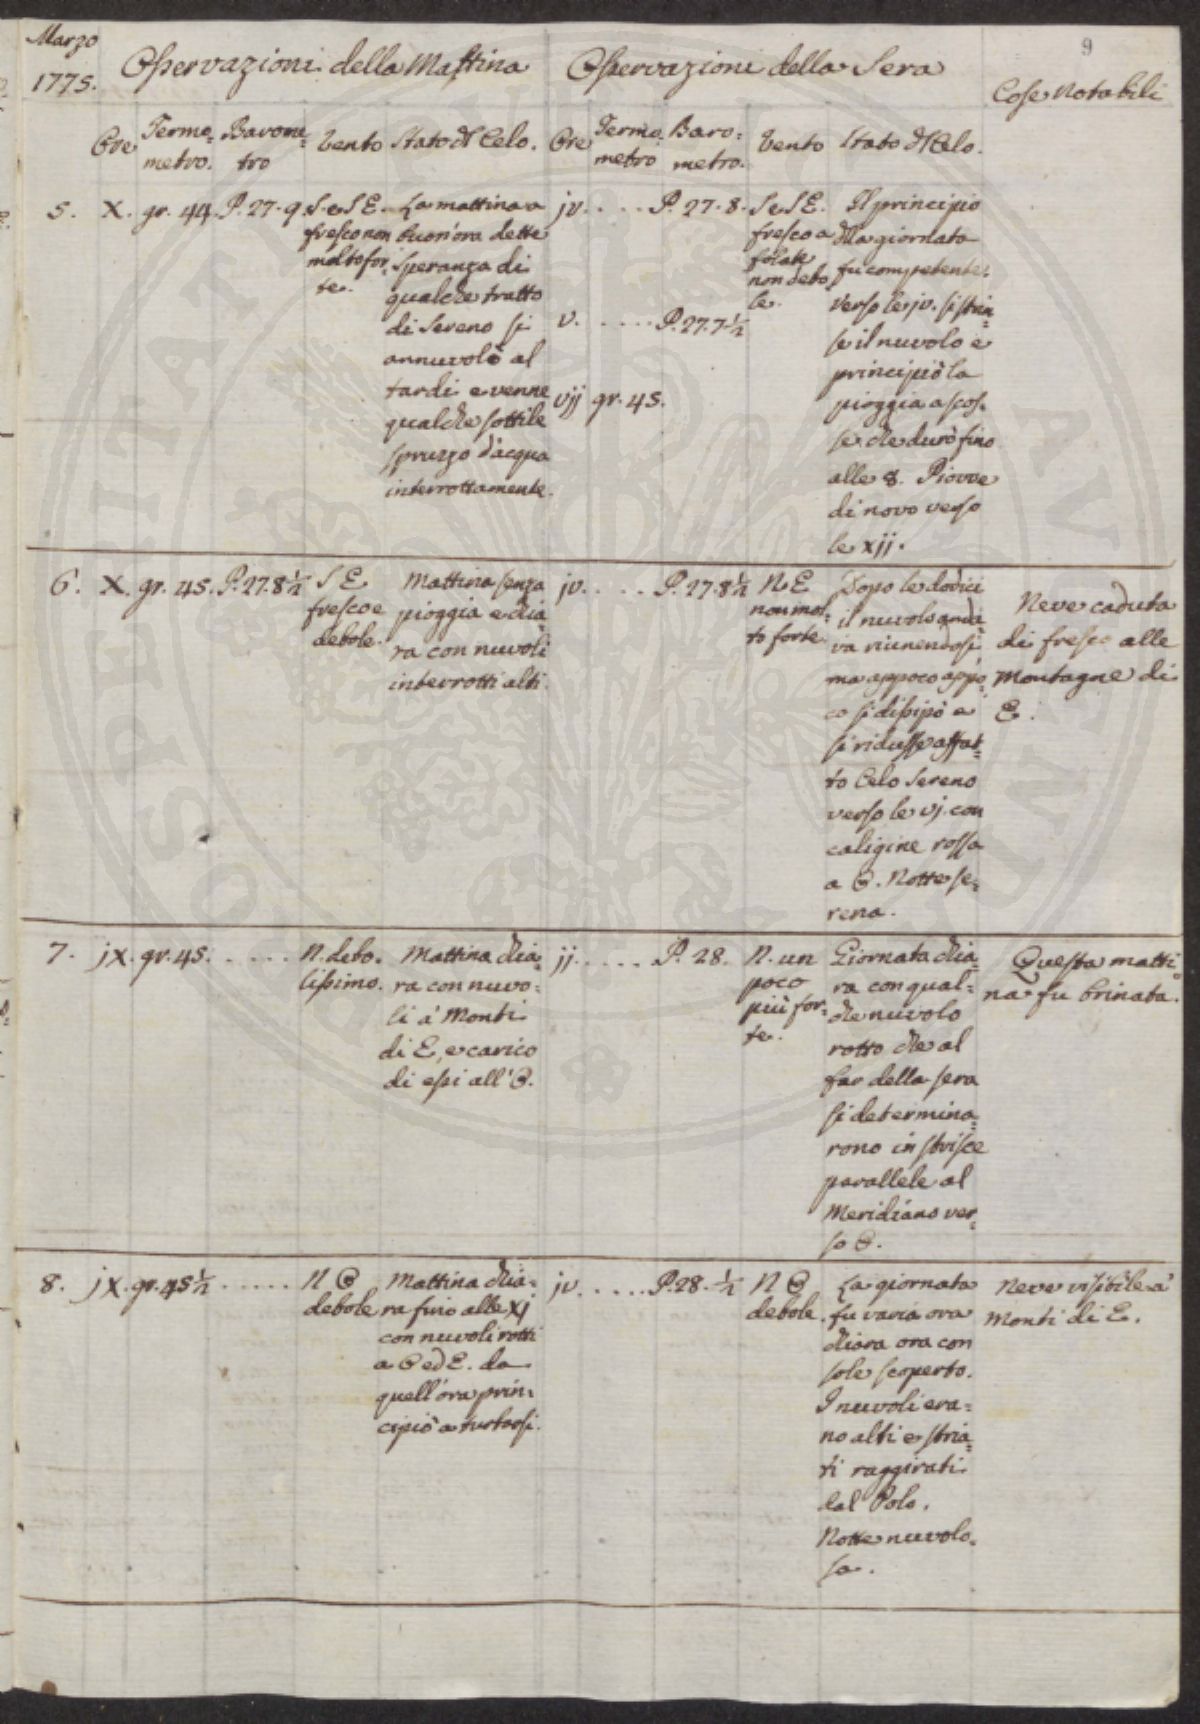 Marzo
1775.
Osservazioni della Mattina
Osservazioni della Sera
9
Cose Notabili
Ore
Termo-
metro.
Barome-
tro
Vento
Stato del Celo.
Ore
Termo
metro
Baro-
metro.
Vento
Stato del Celo.
5.
X.
gr. 44.
P. 27. 9.
S. e S E.
fresco non
molto for-
te.
La mattina a
buon'ora dette
speranza di
qualche tratto
di Sereno si
annuvolò al
tardi e venne
qualche sottile
spruzzo d'acqua
interrottamente.
jv. . . . .
P. 27. 8.
v. . . . .
P. 27. 7 1/2
vij
gr. 45.
S e S E.
fresco a
folate
non debo
le.
Il principio
della giornata
fu competente.
verso le jv. si strin-
se il nuvolo e
principiò la
pioggia a scos-
se che durò fino
alle 8. Piovve
di novo verso
le xij.
6.
X.
gr. 45.
P. 27. 8 1/2
S E
fresco e
debole.
Mattina senza
pioggia e chia-
ra con nuvoli
interrotti alti.
jv. . . . .
P. 27. 8 1/2
N. E
non mol-
to forte.
Dopo le dodici
il nuvolo anda-
va riunendosi
ma appoco appo-
co si dissipò e
si ridusse affat-
to Celo Sereno
verso le vj. con
caligine rossa
a O. Notte se-
rena.
Neve caduta
di fresco alle
Montagne di
E.
7.
jX.
gr. 45. . . . . .
N. debo-
lissimo.
Mattina chia-
ra con nuvo-
li a' Monti
di E, e carico
di essi all' O.
jj. . . . .
P. 28.
N. un
poco
più for-
te.
Giornata chia-
ra con qual-
che nuvolo
rotto che al
far della sera
si determina-
rono in strisce
parallele al
Meridiano ver-
so O.
Questa matti-
na fu brinata.
8.
jX.
gr. 45 1/2 . . . . .
N O
debole
Mattina chia-
ra fino alle xj
con nuvoli rotti
a O ed E. da
quell'ora prin-
cipiò a turbarsi.
jv. . . . .
P. 28. 1/2
N O
debole.
La giornata
fu varia ora
chiara ora con
sole scoperto.
I nuvoli era-
no alti e stria-
ti raggirati
dal Polo.
Notte nuvolo-
sa.
Neve visibile a'
Monti di E.